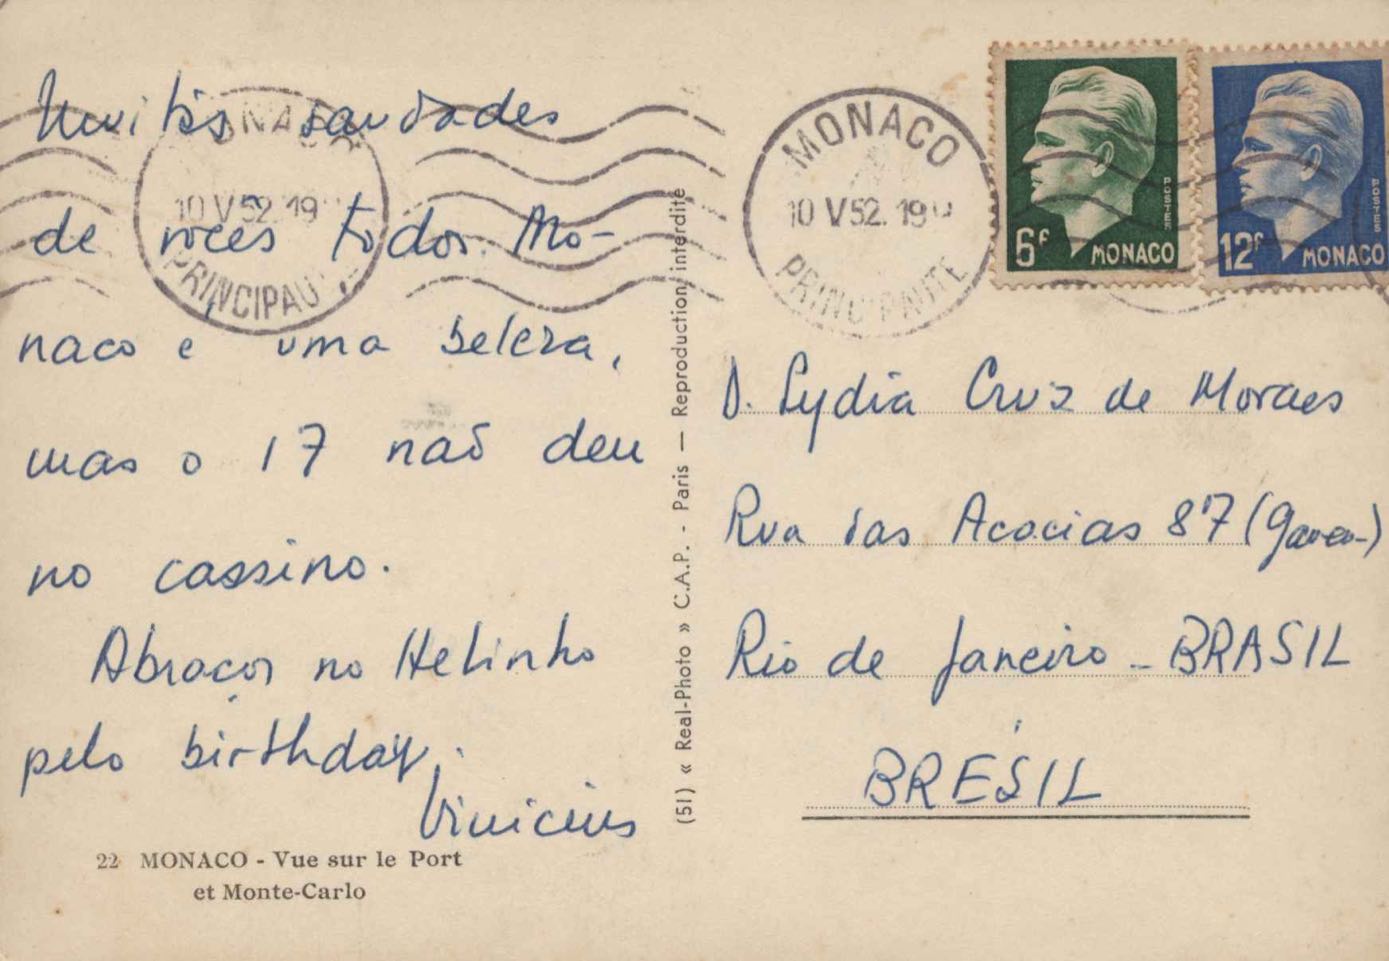 Muitas saudades
de vocês todos. Mo-
naco é uma beleza,
mas o 17 não deu
no cassino.
Abraços no Helinho
pelo birthday.
Vinicius
22 MONACO - Vue sur le Port
et Monte-Carlo
(51) « Real-Photo » C.A.P. - Paris — Reproduction interdite
MONACO
10 V 52. 19
PRINCIPAU
MONACO
10 V 52. 19
PRINCIPAUTE
POSTES
6F MONACO
POSTES
12F MONACO
D. Lydia Cruz de Moraes
Rua das Acacias 87 (Gavea)
Rio de Janeiro - BRASIL
BRÉSIL